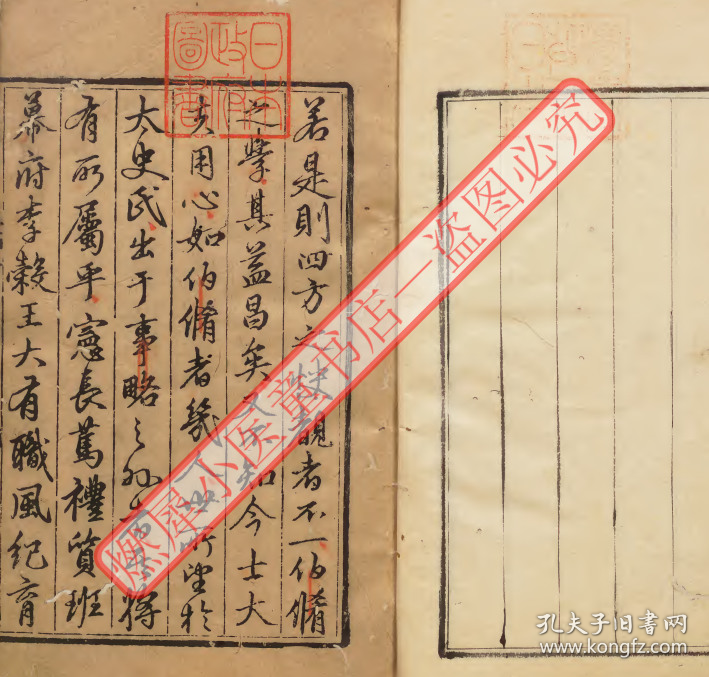 若是則四方之
觀者不一伯脩
之學其益昌矣又
知今士大
夫用心如伯脩者幾人
望於
太史氏出于事略之外
将
有所屬乎憲長篤禮質班
幕府李榖王大有職風紀育
日本
政府
圖書
燃犀小医童书店—盗图必究
孔夫子旧书网
www.kongfz.com